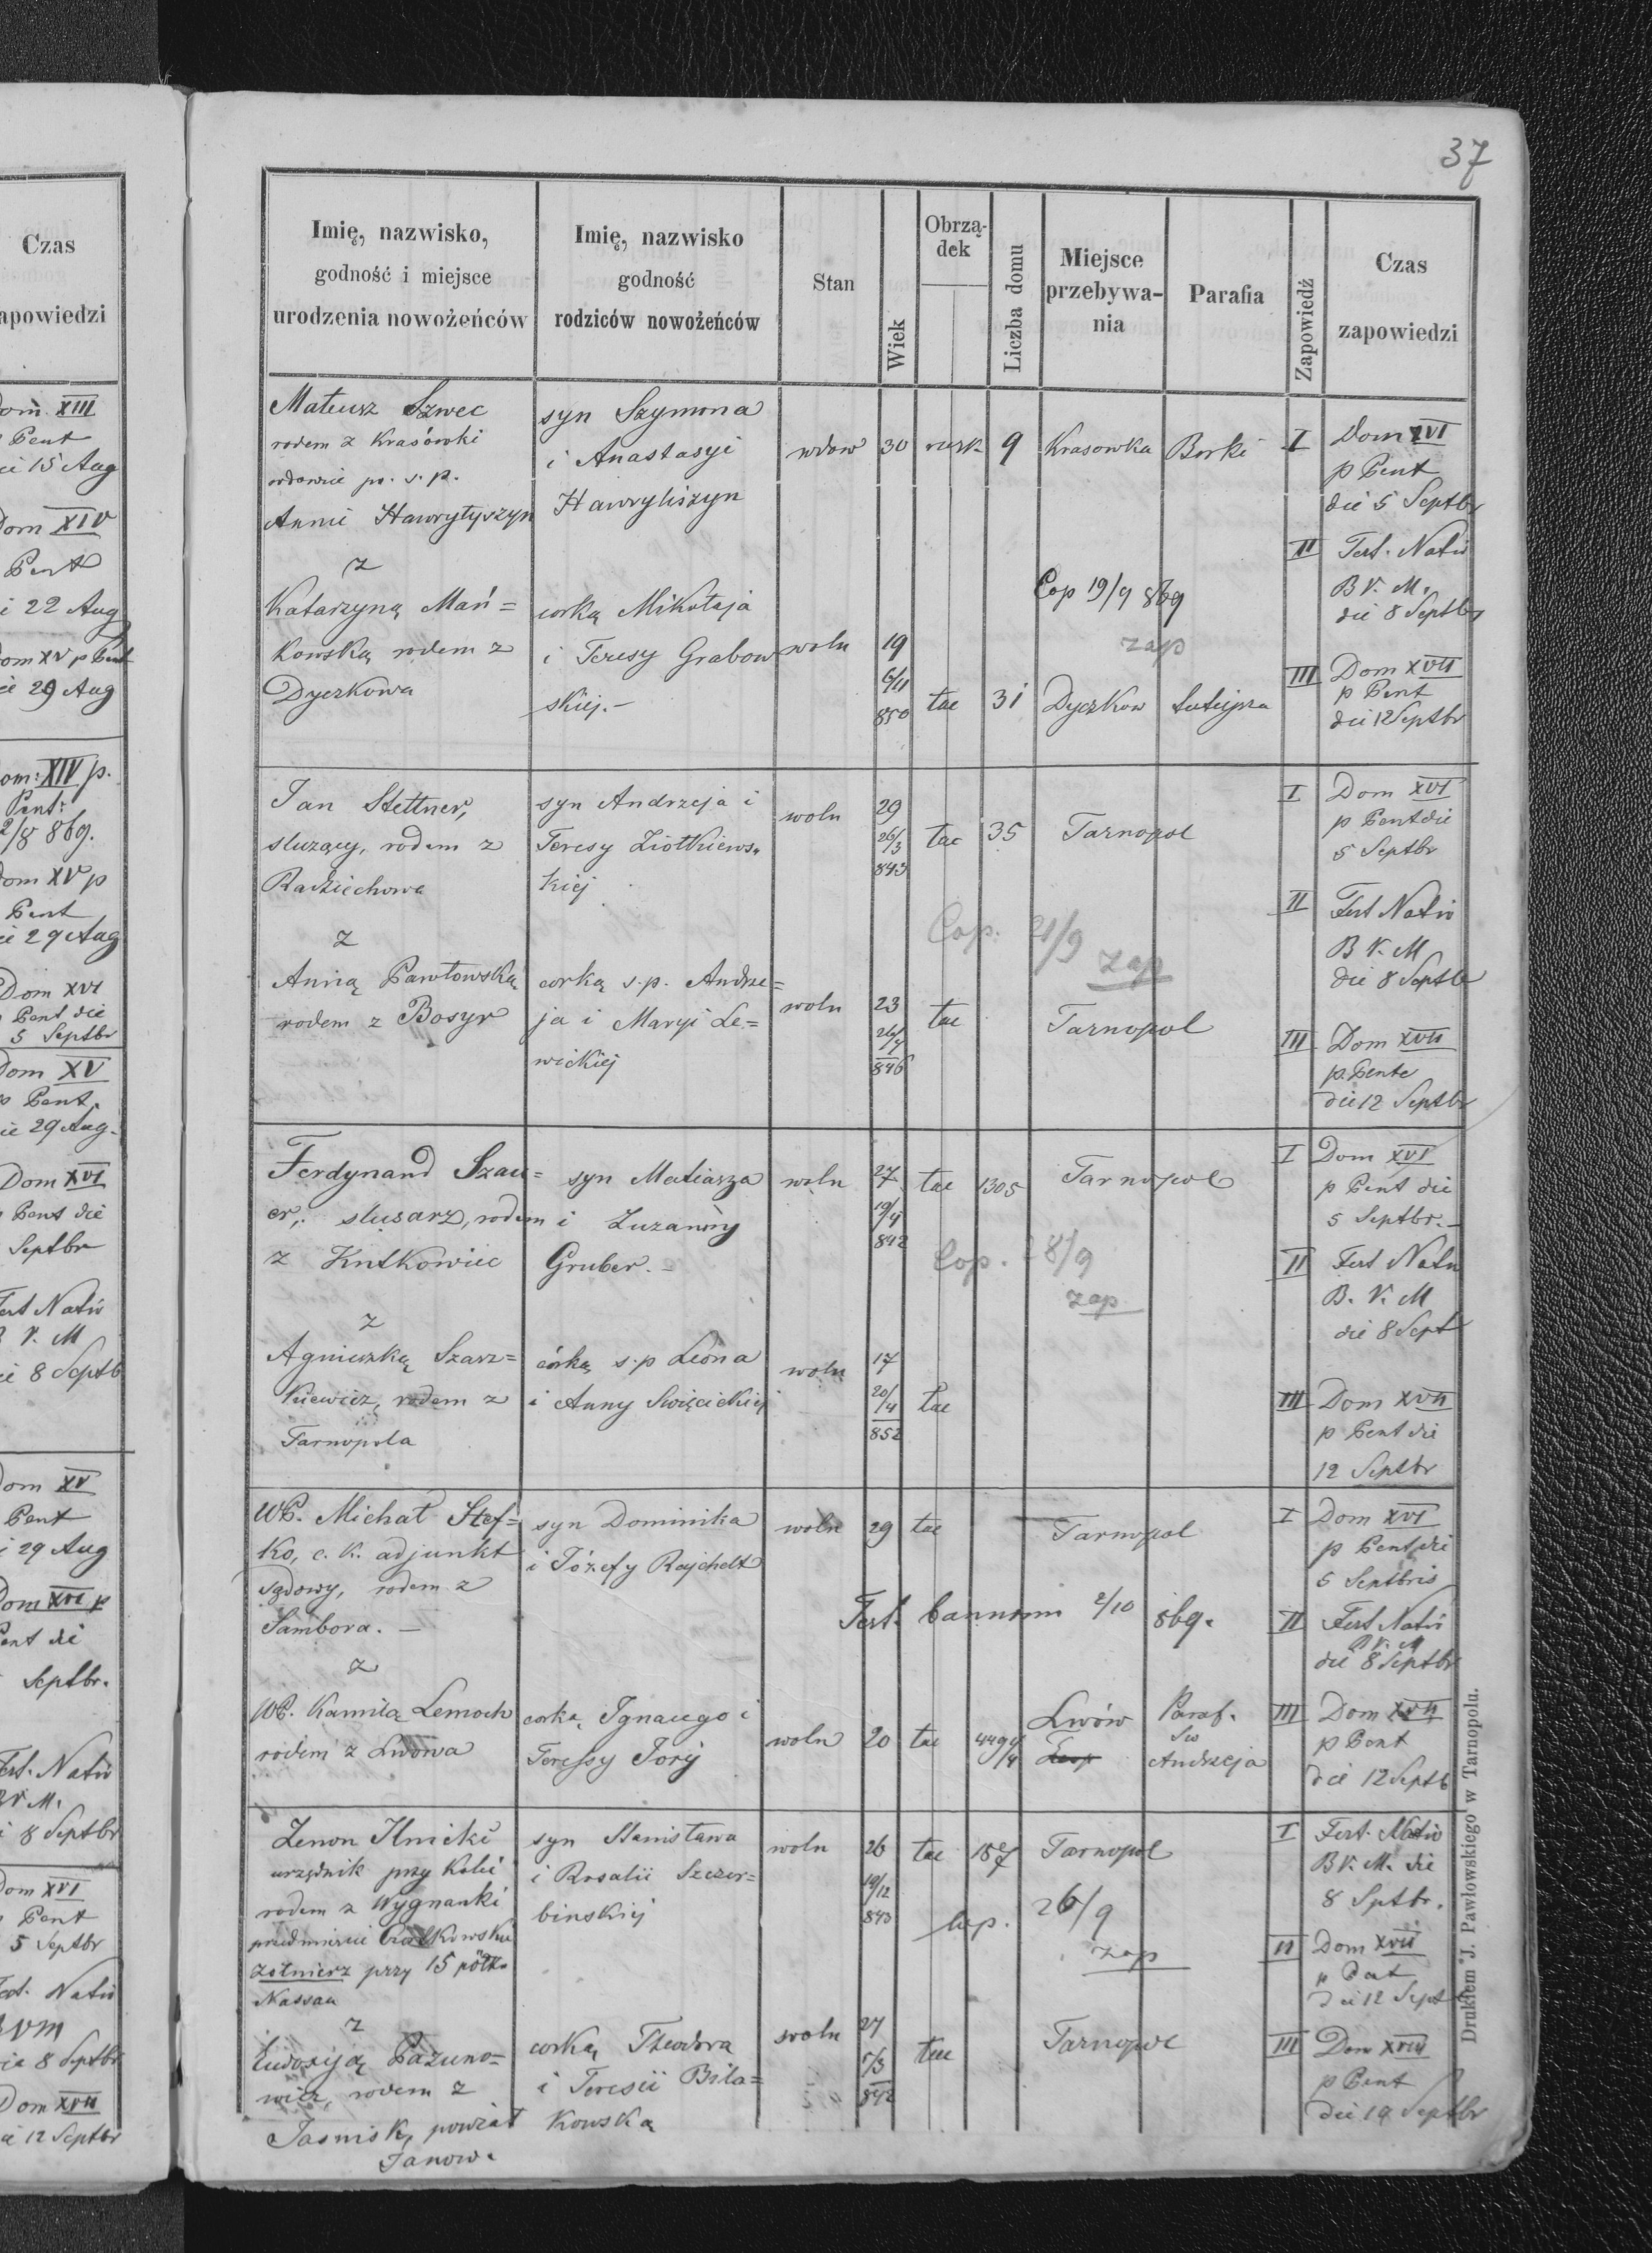 Czas
apowiedzi
Dom XIII
Pent
15 Aug
Dom XIV
Pent
22 Aug
Dom XV p Pent
29 Aug
Dom: XIV p.
Pent:
2/8 869.
Dom XV p
Pent
29 Aug
Dom XVI
Pent die
5 Septbr
Dom XV
p Pent.
29 Aug.
Dom XVI
Pent die
Septbr
Fest Nativ
V. M
8 Septb
Dom XV
Pent
29 Aug
Dom XVI p
Pent die
Septbr.
Fest. Nativ
V M.
8 Septbr
Dom XVI
Pent
5 Septbr
Fest. Nativ
B V M
8 Septbr
Dom XVII
12 Septbr
37
Imię, nazwisko,
godność i miejsce
urodzenia nowożeńców
Imię, nazwisko
godność
rodziców nowożeńców
Stan
Wiek
Obrzą-
dek
Liczba domu
Miejsce
przebywa-
nia
Parafia
Zapowiedź
Czas
zapowiedzi
Mateusz Szwec
rodem z Krasówki
wdowiec po ś. p.
Annie Hawrytyszyn
syn Szymona
i Anastasyi
Hawryliszyn
wdow 30 rusk. 9 Krasowka Borki
I Dom XVI
p Pent
die 5 Septbr
II Fest. Nativ
B V. M.
die 8 Septbr
z
Katarzyną Mań=
kowską rodem z
Dyczkowa
corką Mikołaja
i Teresy Grabow
skiej.-
woln 19
6/11
850
Cop 19/9 869
zap
lac 31 Dyczkow tutejsza
III Dom XVII
p Pent
die 12 Septbr
Jan Stettner,
sluzący, rodem z
Radziechowa
syn Andrzeja i
Teresy Ziółkiews=
kiej
woln 29
26/3
843
lac 35 Tarnopol
I Dom XVI
p Pent die
5 Septbr
II Fest Nativ
B V. M
die 8 Septbr
Cop. 21/9
zap
z
Anną Pawłowską
rodem z Bosyr
corką s.p. Andrze=
ja i Maryi Le=
wickiej
woln 23
846
lac Tarnopol
III Dom XVII
p. Pente
die 12 Septbr
Ferdynand Szau=
er, slusarz, rodem
z Kutkowiec
syn Matiasza
i Zuzanny
Gruber.-
woln 27
19/4
842
lac 1305 Tarnopol
Cop. 28/9
zap
I Dom XVI
p Pent die
5 Septbr.-
II Fest Nativ
B. V. M
die 8 Sept
z
Agnieszką Szasz=
kiewicz, rodem z
Tarnopola
córką s.p Leona
i Anny Swięcickiej
woln 17
20/4
852
lac
III Dom XVII
p Pent die
12 Septbr
WP. Michał Stef=
ko, c. k. adjunkt
sądowy, rodem z
Sambora.-
syn Dominika
i Józefy Rajchelt
woln 29 lac Tarnopol
Test. bannorum 2/10 869.
I Dom XVI
p Pent die
5 Septbris
II Fest Nativ
B V. M
die 8 Septbr
z
WP. Kamilą Lemoch
rodem z Lwowa
corką Ignacego i
Teressy Jorij
woln 20 lac 449 4/4 Lwów
Paraf.
Św
Andrzeja
III Dom XVII
p Pent
die 12 Septb
Zenon Ilnicki
urzędnik przy kolei
rodem z Wygnanki
przedmieście
żołnierz przy 15 półk.
Nassau
syn Stanisława
i Rosalii Szczer=
binskiej
woln 26
19/12
843
lac 187 Tarnopol
cop. 26/9
zap
I Fest. Nativ
B V. M. die
8 Sptbr.
II Dom XVII
p Pent
die 12 Sept
z
Eudoxyją Pazuno=
wicz, rodem z
Jasnisk, powiat
Janow.
corką Theodora
i Teresii Bila=
kowska
woln 27
1/3
842
lac Tarnopol
III Dom XVIII
p Pent
die 19 Septbr
Drukiem J. Pawłowskiego w Tarnopolu.